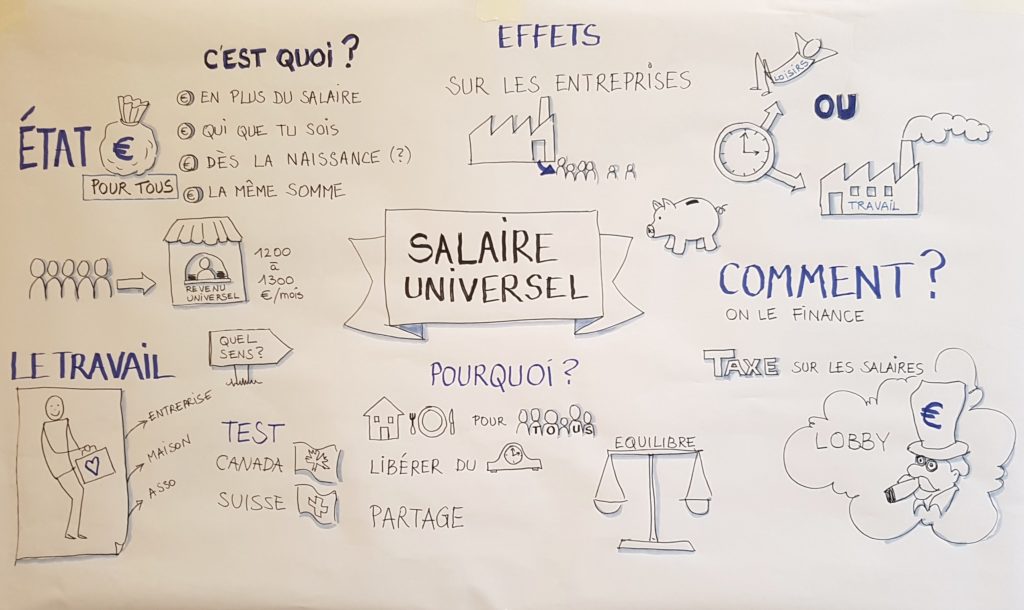 C'EST QUOI ?
ÉTAT
€
POUR TOUS
€ EN PLUS DU SALAIRE
€ QUI QUE TU SOIS
€ DÈS LA NAISSANCE (?)
€ LA MÊME SOMME
REVENU
UNIVERSEL
1200
à
1300
€/mois
EFFETS
SUR LES ENTREPRISES
LOISIRS
OU
TRAVAIL
SALAIRE
UNIVERSEL
COMMENT ?
ON LE FINANCE
TAXE SUR LES SALAIRES
LOBBY
€
LE TRAVAIL
QUEL
SENS?
ENTREPRISE
MAISON
ASSO
TEST
CANADA
SUISSE
POURQUOI ?
POUR TOUS
LIBÉRER DU
PARTAGE
EQUILIBRE